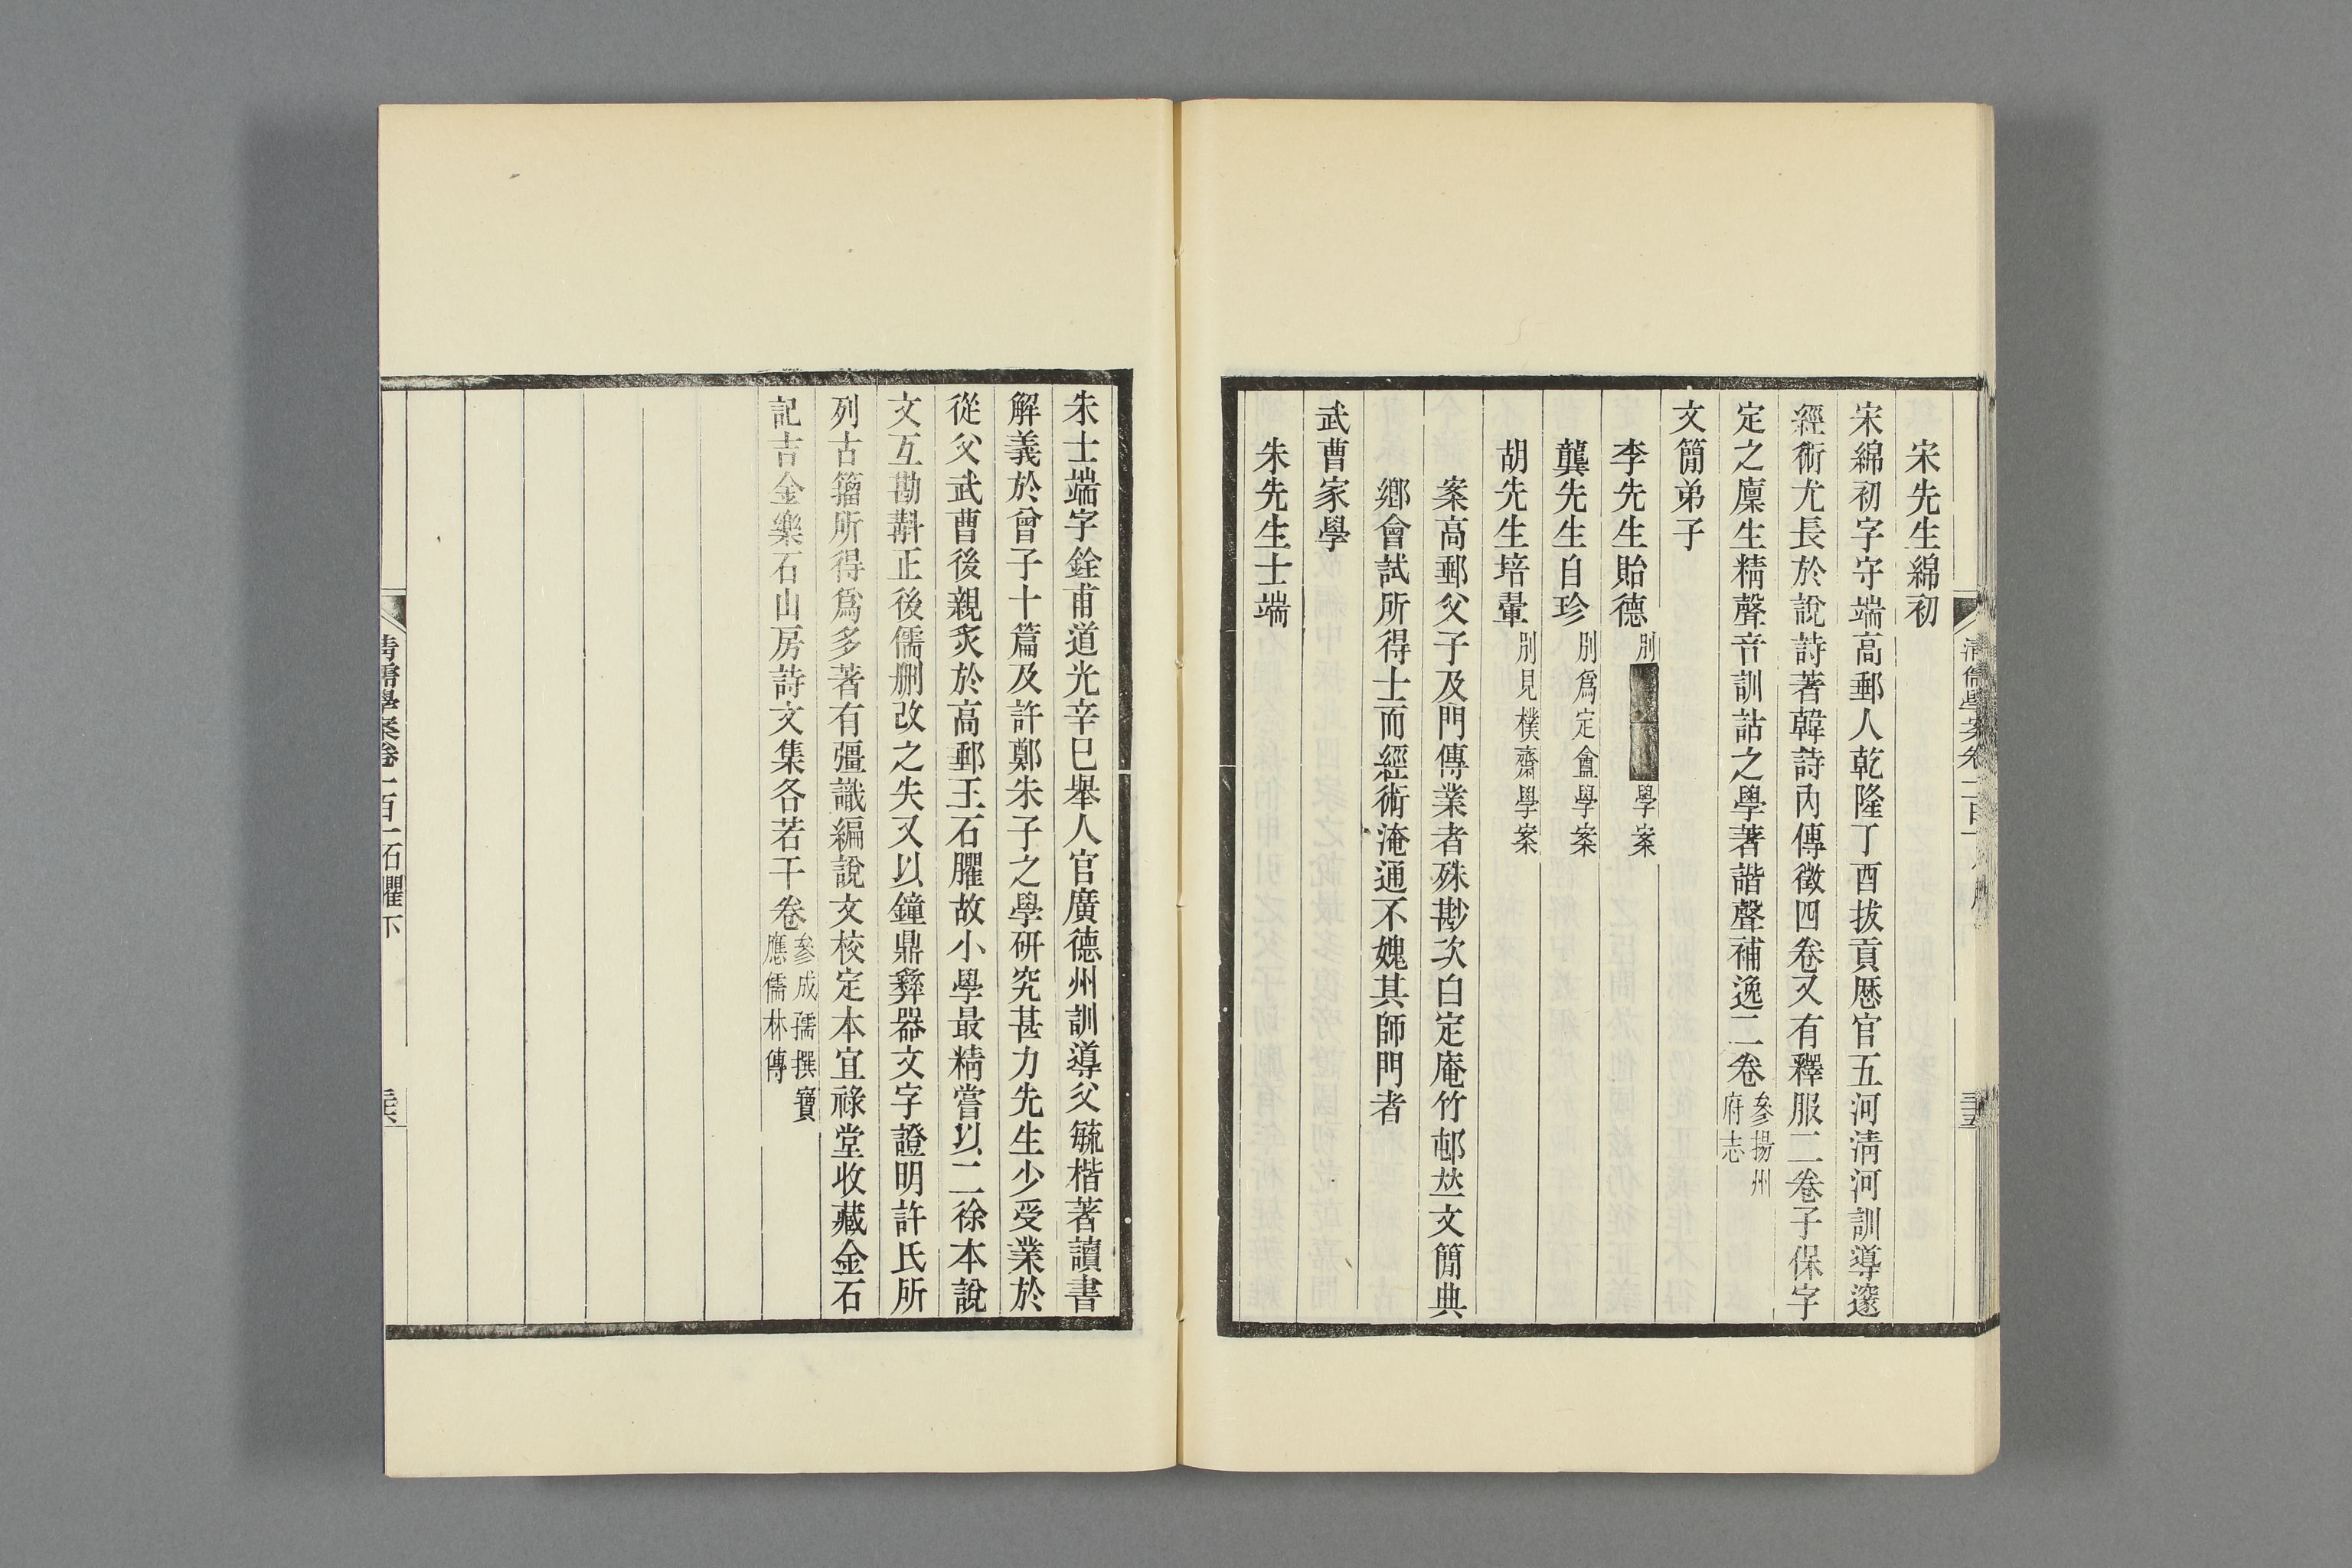 宋先生綿初
宋綿初字守端高郵人乾隆丁酉拔貢歷官五河清河訓導邃
經術尤長於說詩著韓詩內傳徵四卷又有釋服二卷子保字
定之廩生精聲音訓詁之學著諧聲補逸二卷參揚州
府志
文簡弟子
李先生貽德別
學案
龔先生自珍別爲定盦學案
胡先生培翬別見樸齋學案
案高郵父子及門傳業者殊尠次白定庵竹邨竝文簡典
鄉會試所得士而經術淹通不媿其師門者
武曹家學
朱先生士端
朱士端字銓甫道光辛巳舉人官廣德州訓導父毓楷著讀書
解義於曾子十篇及許鄭朱子之學研究甚力先生少受業於
從父武曹後親炙於高郵王石臞故小學最精嘗以二徐本說
文互勘斠正後儒刪改之失又以鐘鼎彝器文字證明許氏所
列古籀所得爲多著有彊識編說文校定本宜祿堂收藏金石
記吉金樂石山房詩文集各若干卷參成孺撰寶
應儒林傳
清儒學案卷一百一石臞下